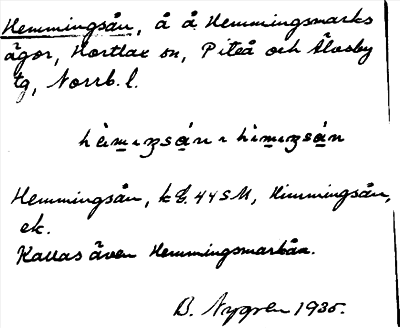 Hemmingsån, å å Hemmingsmarks
ägor, Hortlax sn, Piteå och Älvsby
tg, Norrb. l.
Hemmingsån, k bl. 44 S M, Himmingsån,
ek.
Kallas även Hemmingsmarkån.
B. Nygren 1935.